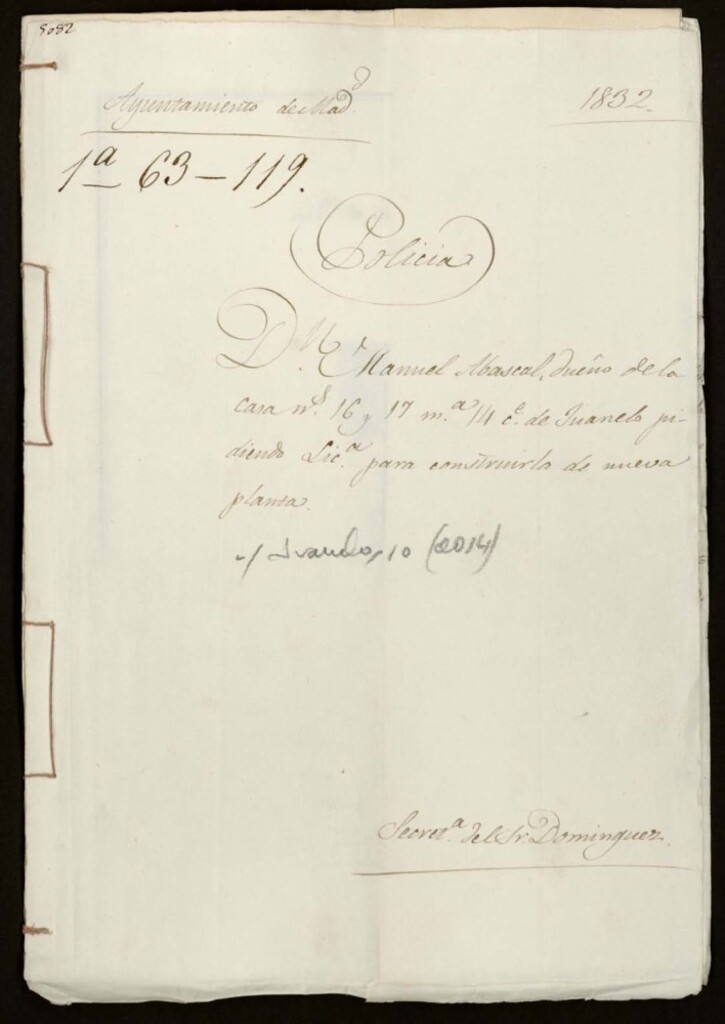 5082
Ayuntamiento de Mad.d
1832.
1ª 63-119.
Policia
D.n Manuel Abascal, dueño de la
casa n.s 16 y 17 m.ª 14 c.e de Juanelo pi-
diendo Lic.ª para construirla de nueva
planta.
c/ Juanelo, 10 (2014)
Secret.ª del Sr. Dominguez.